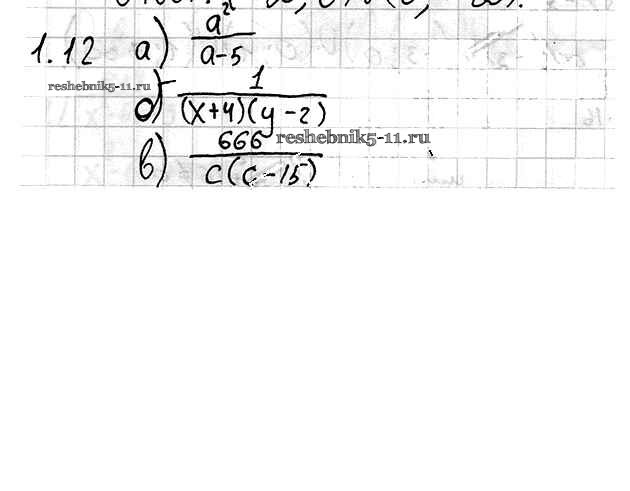 1.12 а) a²/(a-5)
reshebnik5-11.ru
б) 1/((x+4)(y-2))
reshebnik5-11.ru
в) 666/(c(c-15))